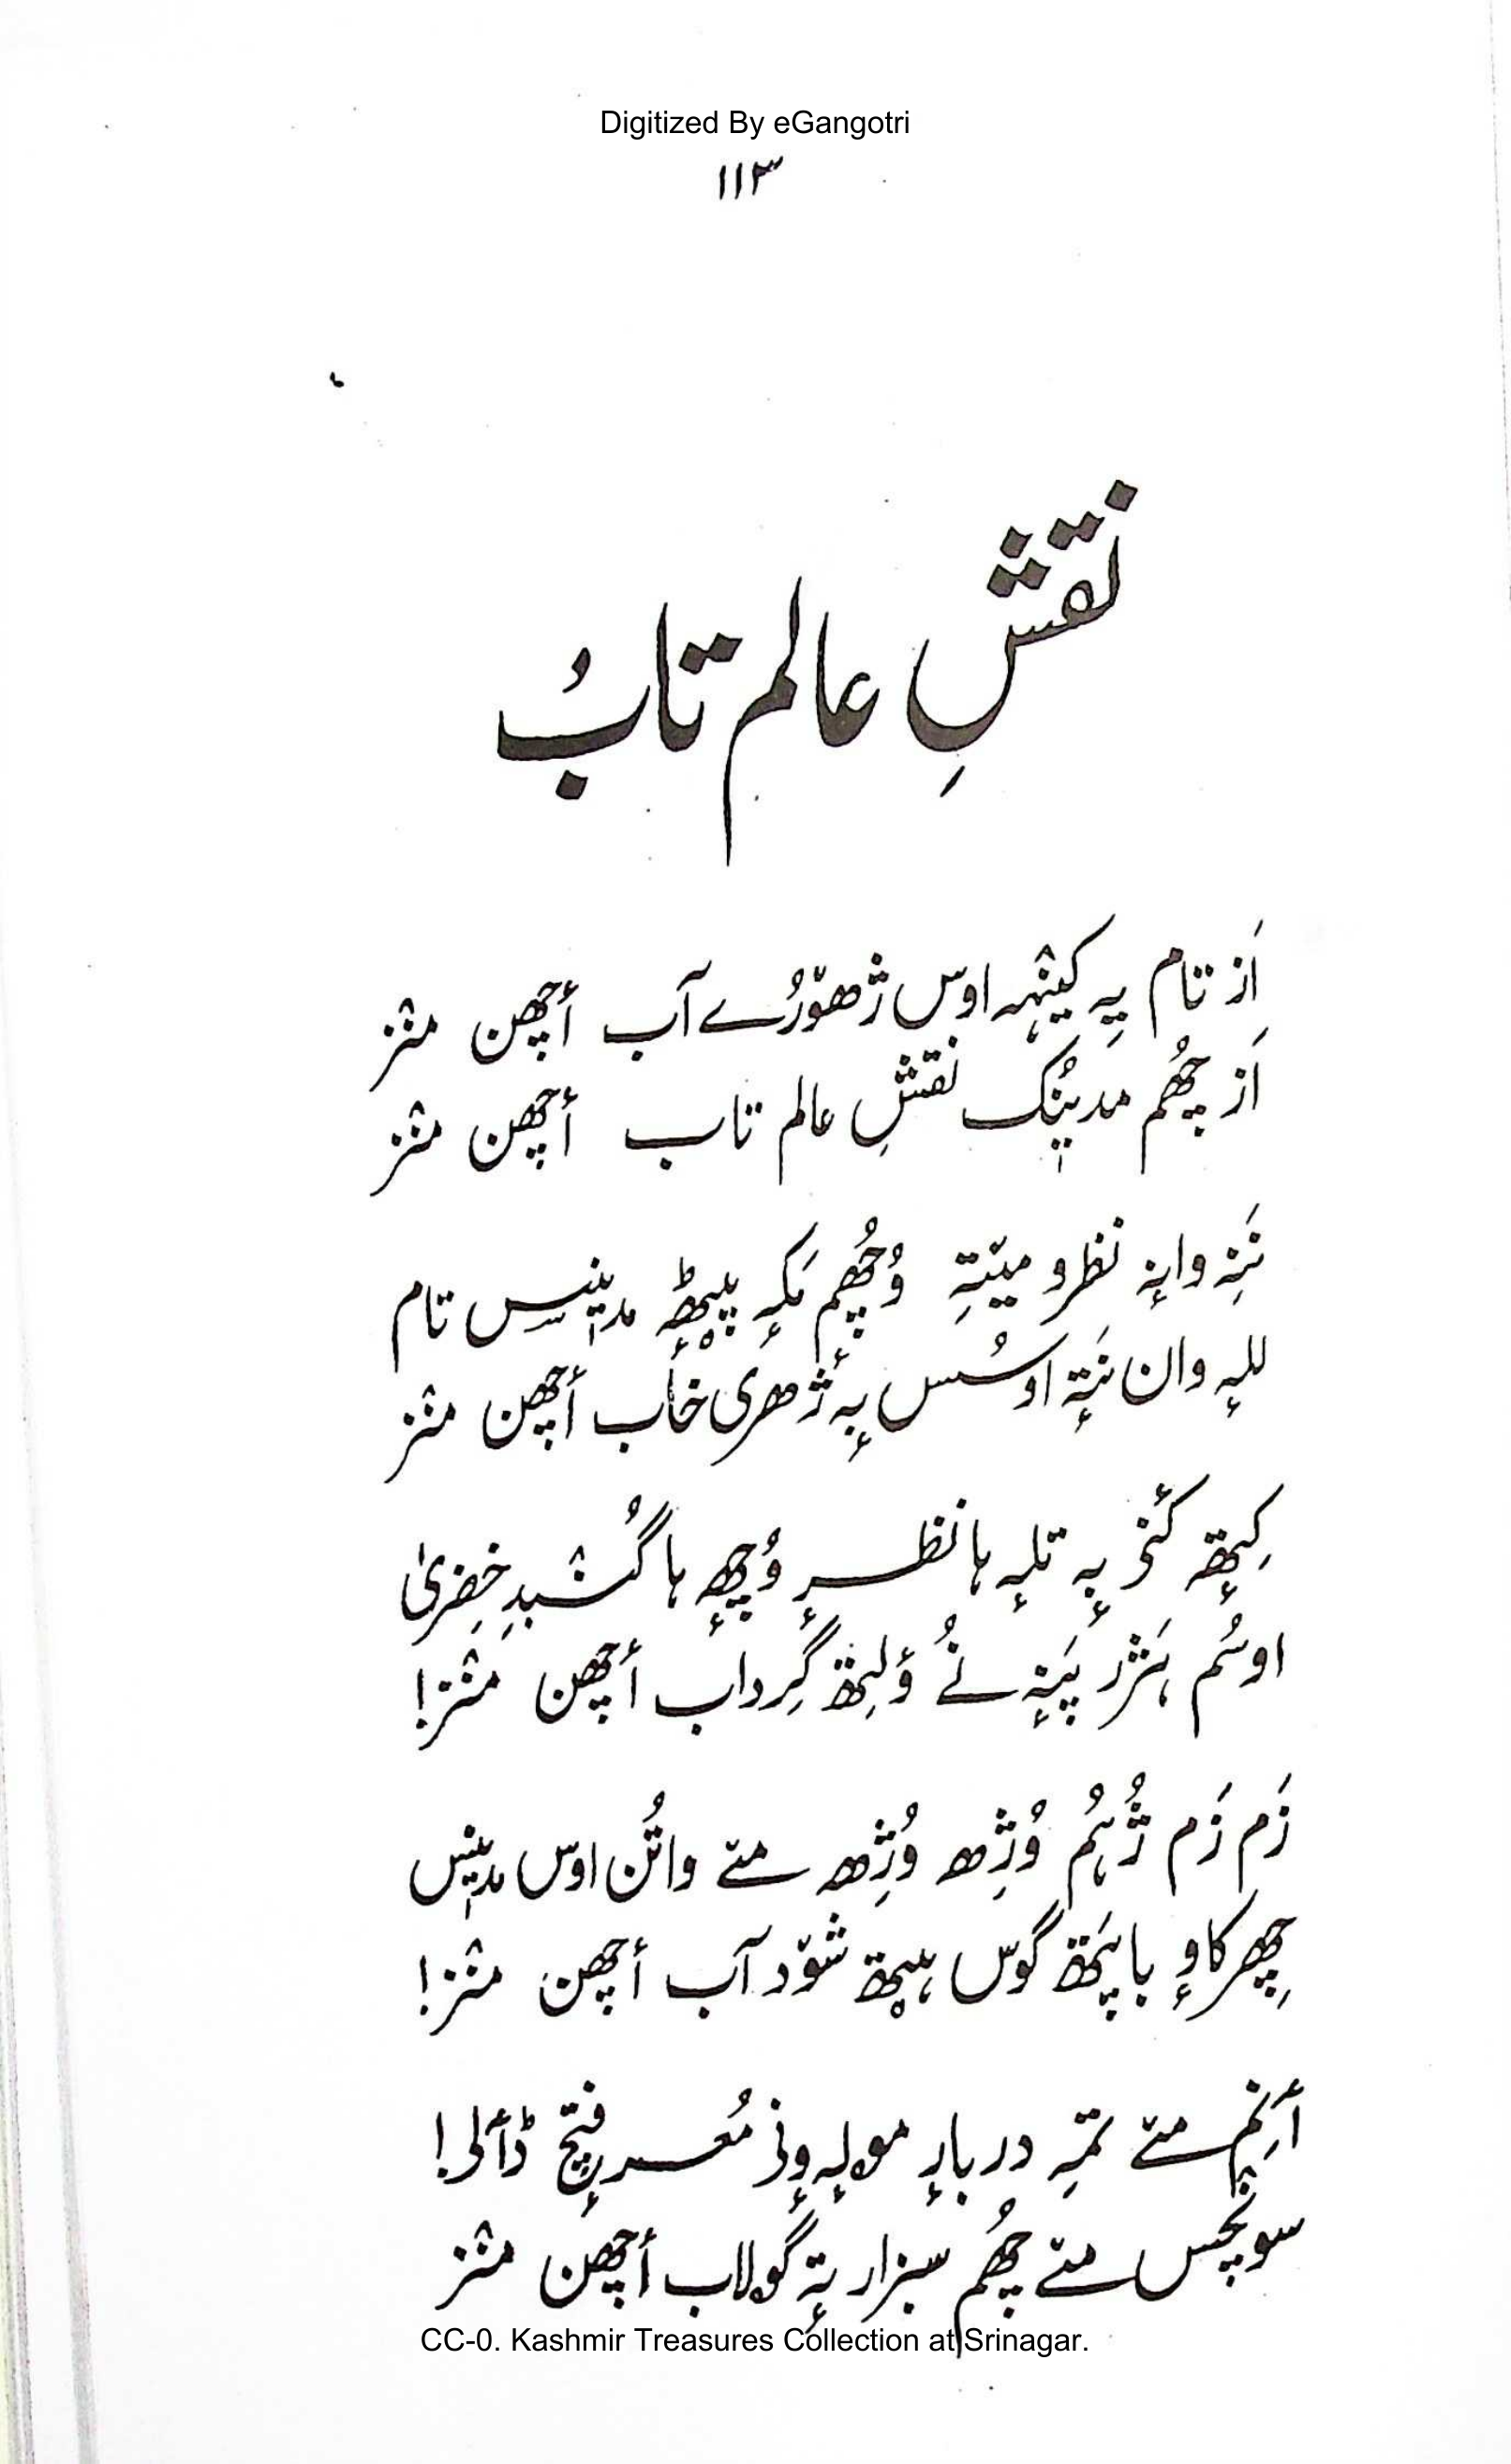 Digitized By eGangotri
۱۱۳
نقشِ عالم تابُ
اَز تام یِہ کینٛہہ اوس ژھۆرُے آب أچھن منٛز
اَز چھُم مدیٖنُک نقشِ عالم تاب أچھن منٛز
نَنِہ وانہٕ نظرو میٚتہِ وُچھُم مَکہٕ پیٹھٕ مدیٖنس تام
للہٕ وان نَتہٕ اوسُس بہٕ ژھری خأب أچھن منٛز
کِتھہٕ کَنۍ بہٕ تلہٕ ہا نظرٕ وُچھہٕ ہا گُنٛبدِ خِضریٰ
اوسُم ہَنژر پَنہٕ نُے وٕلِتھ گِرداب أچھن منٛز!
زَم زَم ژٔہُم وُژھ وُژھ مےٚ واتُن اوس مدیٖنس
چھِرکاوٕ باپَتھ گوس ہیٚتھ شۆد آب أچھن منٛز!
أنِم مےٚ تمہِ دربارٕ مولہٕ وٕنۍ مُعرفتٕچ ڈألی!
سونچس مےٚ چھُم سبزار تہٕ گولاب أچھن منٛز
CC-0. Kashmir Treasures Collection at Srinagar.